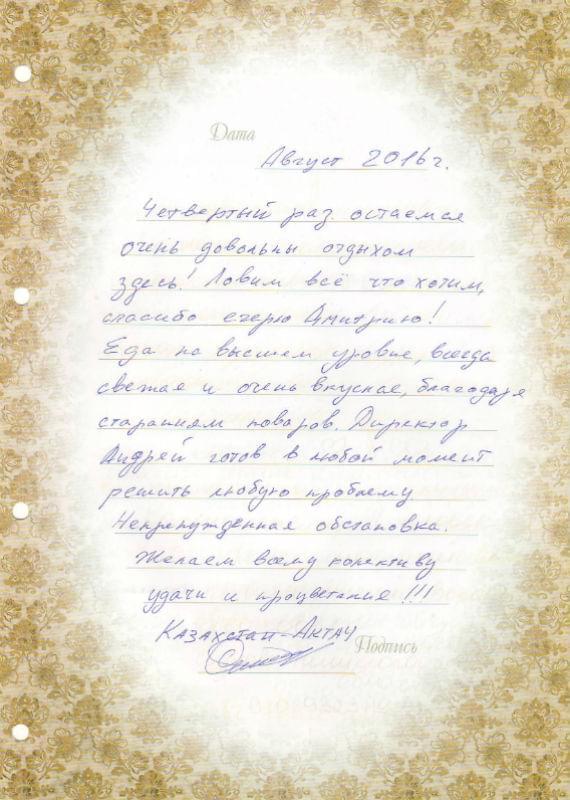 Дата
Август 2016 г.
Четвертый раз остаемся
очень довольны отдыхом
здесь! Ловим всё что хотим,
спасибо егерю Дмитрию!
Еда на высшем уровне, всегда
свежая и очень вкусная, благодаря
стараниям поваров. Директор
Андрей готов в любой момент
решить любую проблему
Непренужденная обстановка.
Желаем всему колективу
удачи и процветания!!!
Казахстан-Актау
Подпись